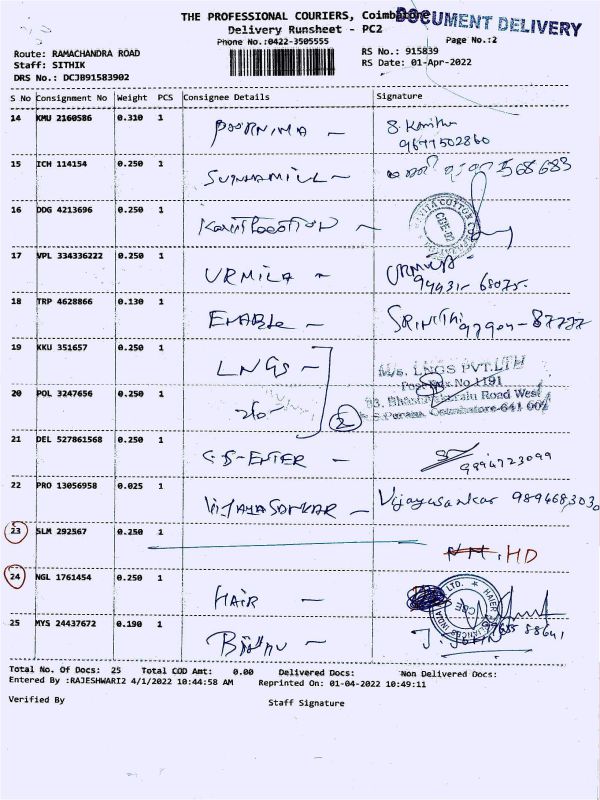 THE PROFESSIONAL COURIERS, Coimbatore
DOCUMENT DELIVERY
Delivery Runsheet - PC2
Phone No.:0422-3505555
Page No.:2
Route: RAMACHANDRA ROAD
RS No.: 915839
Staff: SITHIK
RS Date: 01-Apr-2022
DRS No.: DCJB91583902
S No Consignment No Weight PCS Consignee Details Signature
14 KMU 2160586 0.310 1 POORNIMA - S. Kavitha
9677502860
15 ICH 114154 0.250 1
16 DDG 4213696 0.250 1
17 VPL 334336222 0.250 1 URMILA - URMILA
94431-68075.
18 TRP 4628866 0.130 1 ENABLE - SRINITHI 97904-87777
19 KKU 351657 0.250 1 LNGS - M/s. LNGS PVT.LTD
Post Box No 1191
20 POL 3247656 0.250 1 2 Road West
Coimbatore-641 002
21 DEL 527861568 0.250 1 G.S-ENTER - 9894723099
22 PRO 13056958 0.025 1 VIJAYASANKAR - Vijayasankar 9894683030
23 SLM 292567 0.250 1
HD
24 NGL 1761454 0.250 1 HAIR -
25 MYS 24437672 0.190 1
Total No. Of Docs: 25 Total COD Amt: 0.00 Delivered Docs: Non Delivered Docs:
Entered By :RAJESHWARI2 4/1/2022 10:44:58 AM Reprinted On: 01-04-2022 10:49:11
Verified By Staff Signature